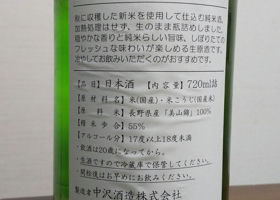 秋に収穫した新米を使用して仕込む純米酒。
加熱処理はせず、生のまま瓶詰めしました。
穏やかな香りと純米らしい旨味、しぼりたての
フレッシュな味わいが楽しめる生原酒です。
冷やしてお飲みいただくのがおすすめです。
【品目】日本酒 【内容量】720ml詰
【原材料名】米(国産)・米こうじ(国産米)
【原料米】長野県産「美山錦」100%
【精米歩合】55%
【アルコール分】17度以上18度未満
・飲酒は20歳になってから。
・生酒ですので冷蔵庫で保管してください。
・開栓後はお早めにお飲みください。
製造者 中沢酒造株式会社